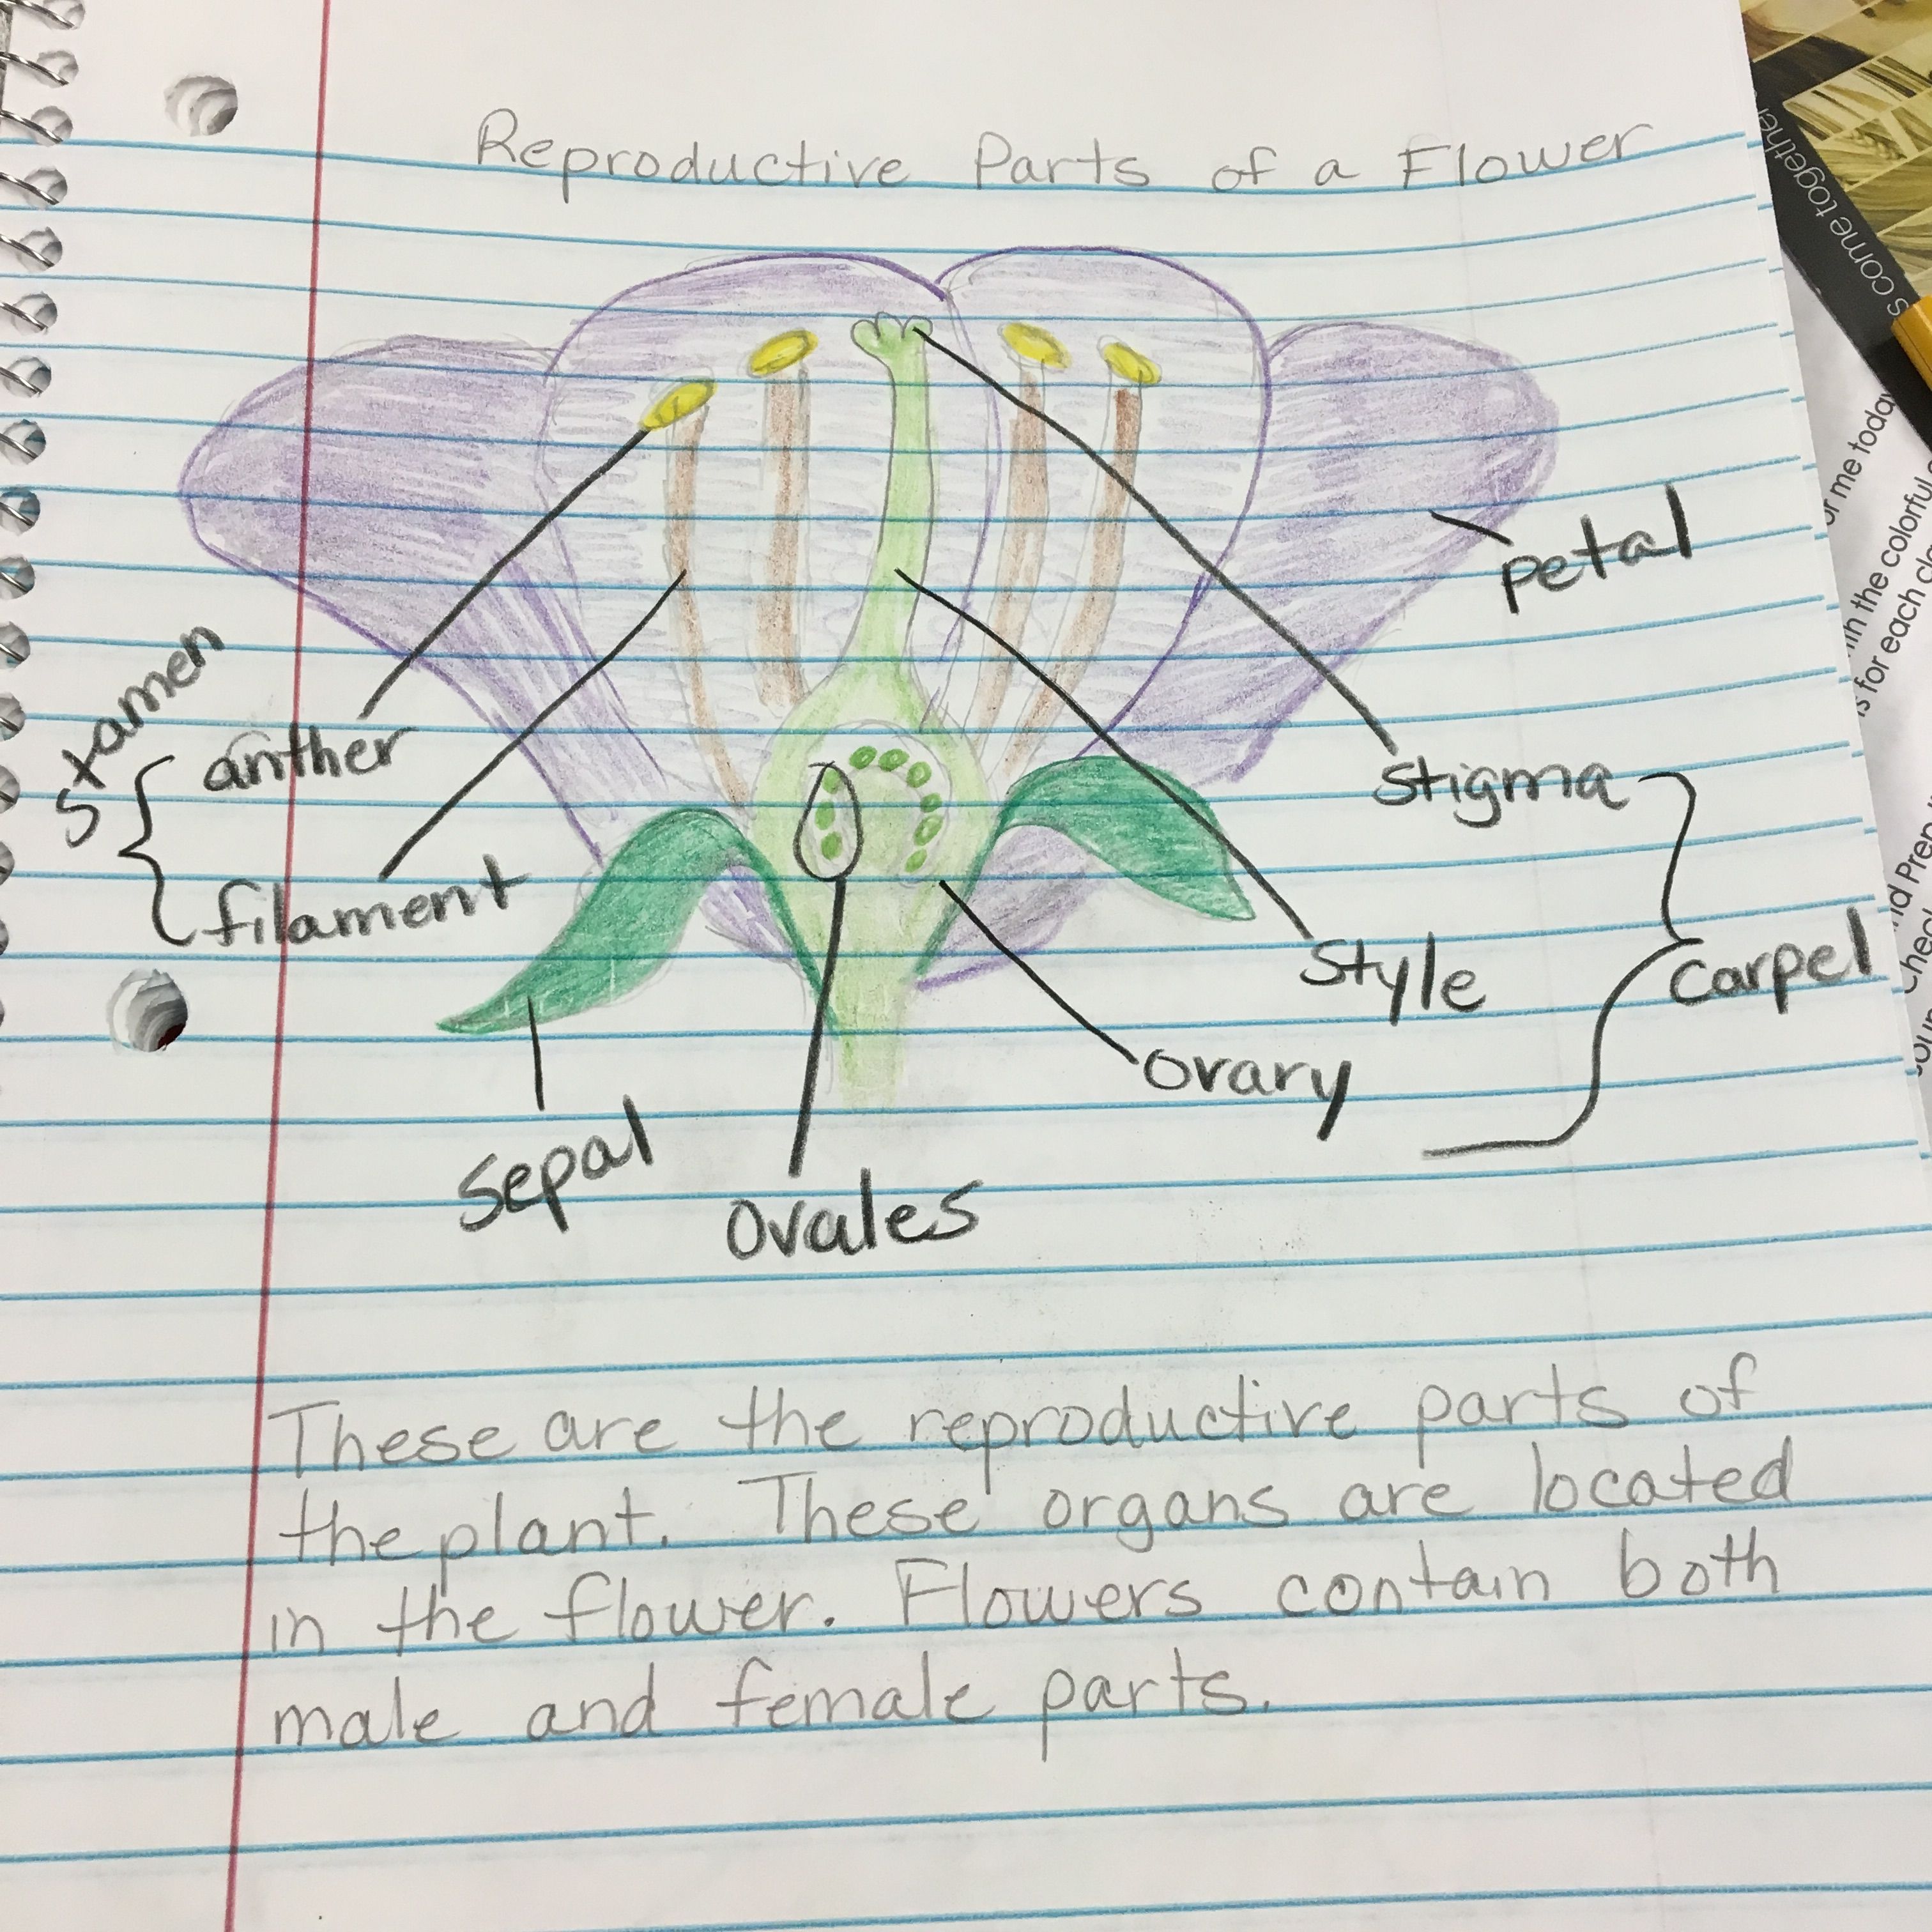 Reproductive Parts of a Flower
petal
stamen
anther
stigma
filament
carpel
style
ovary
sepal
ovales
These are the reproductive parts of
the plant. These organs are located
in the flower. Flowers contain both
male and female parts.
s come together
or me today
in the colorful
is for each